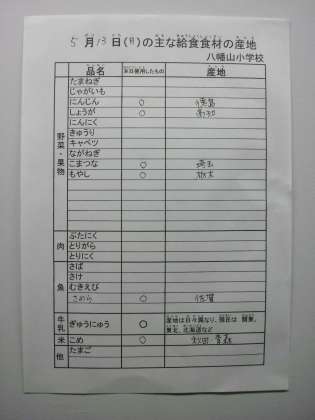 5月13日(月)の主な給食食材の産地
八幡山小学校
品名 本日使用したもの 産地
野菜・果物
たまねぎ
じゃがいも
にんじん ○ 徳島
しょうが ○ 高知
にんにく
きゅうり
キャベツ
ながねぎ
こまつな ○ 埼玉
もやし ○ 栃木
肉
ぶたにく
とりがら
とりにく
魚
さば
さけ
むきえび
さわら ○ 佐賀
牛乳 ぎゅうにゅう ○ 産地は日々異なり、現在は 関東、
東北、北海道など
米 こめ ○ 秋田・青森
他 たまご